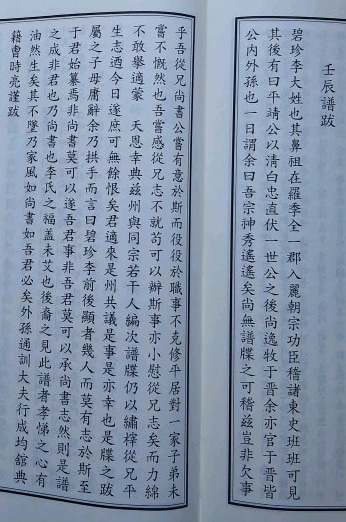 壬辰譜跋
碧珍李大姓也其鼻祖在羅李全一郡入麗朝宗功臣稽諸東史班班可見
其後有曰平靖公以清白忠直伏一世公之後尚逸牧于晋余亦官于晋皆
公內外孫也一日謂余曰吾宗神秀遙遙矣尚無譜牒之可稽茲豈非欠事
乎吾從兄尚書公嘗有意於斯而役役於職事不克修平居對一家子弟未
嘗不慨然也吾嘗感從兄志不就苟可以辦斯事亦小慰從兄志矣而力綿
不敢擧適蒙 天恩幸典兹州與同宗若干人編次譜牒仍以繡梓從兄平
生志迺今日遂庶可無餘恨矣君適來是州共議是事是亦幸也是牒之跋
屬之子毋庸辭余乃拱手而言曰碧珍李前後顯者幾人而莫有志於斯至
于君始纂焉非尚書莫可以遂吾君事非吾君莫可以承尚書志然則是譜
之成非君也乃尚書也李氏之福盖未艾也後裔之見此譜者孝悌之心有
油然生矣其不墜乃家風如尚書如吾君必矣外孫通訓大夫行成均舘典
籍曺時亮謹跋